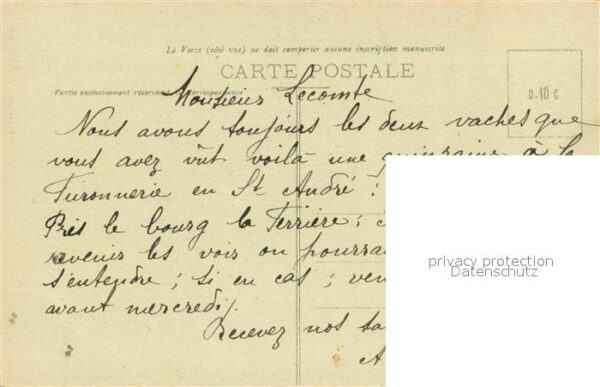 Le Verso (côté vue) ne doit comporter aucune inscription manuscrite
CARTE POSTALE
Partie exclusivement réservée à la correspondance
0.10 c
Monsieur Lecomte
Nous avons toujours les deux vaches que
vous avez vût voilà une quinzaine à la
Turonnerie en St André !
Près le bourg la Ferrière ;
revenir les vois on pourra
s'entendre ; si en cas ; ven
avant mercredi,
Recevez nos sa
A
privacy protection
Datenschutz